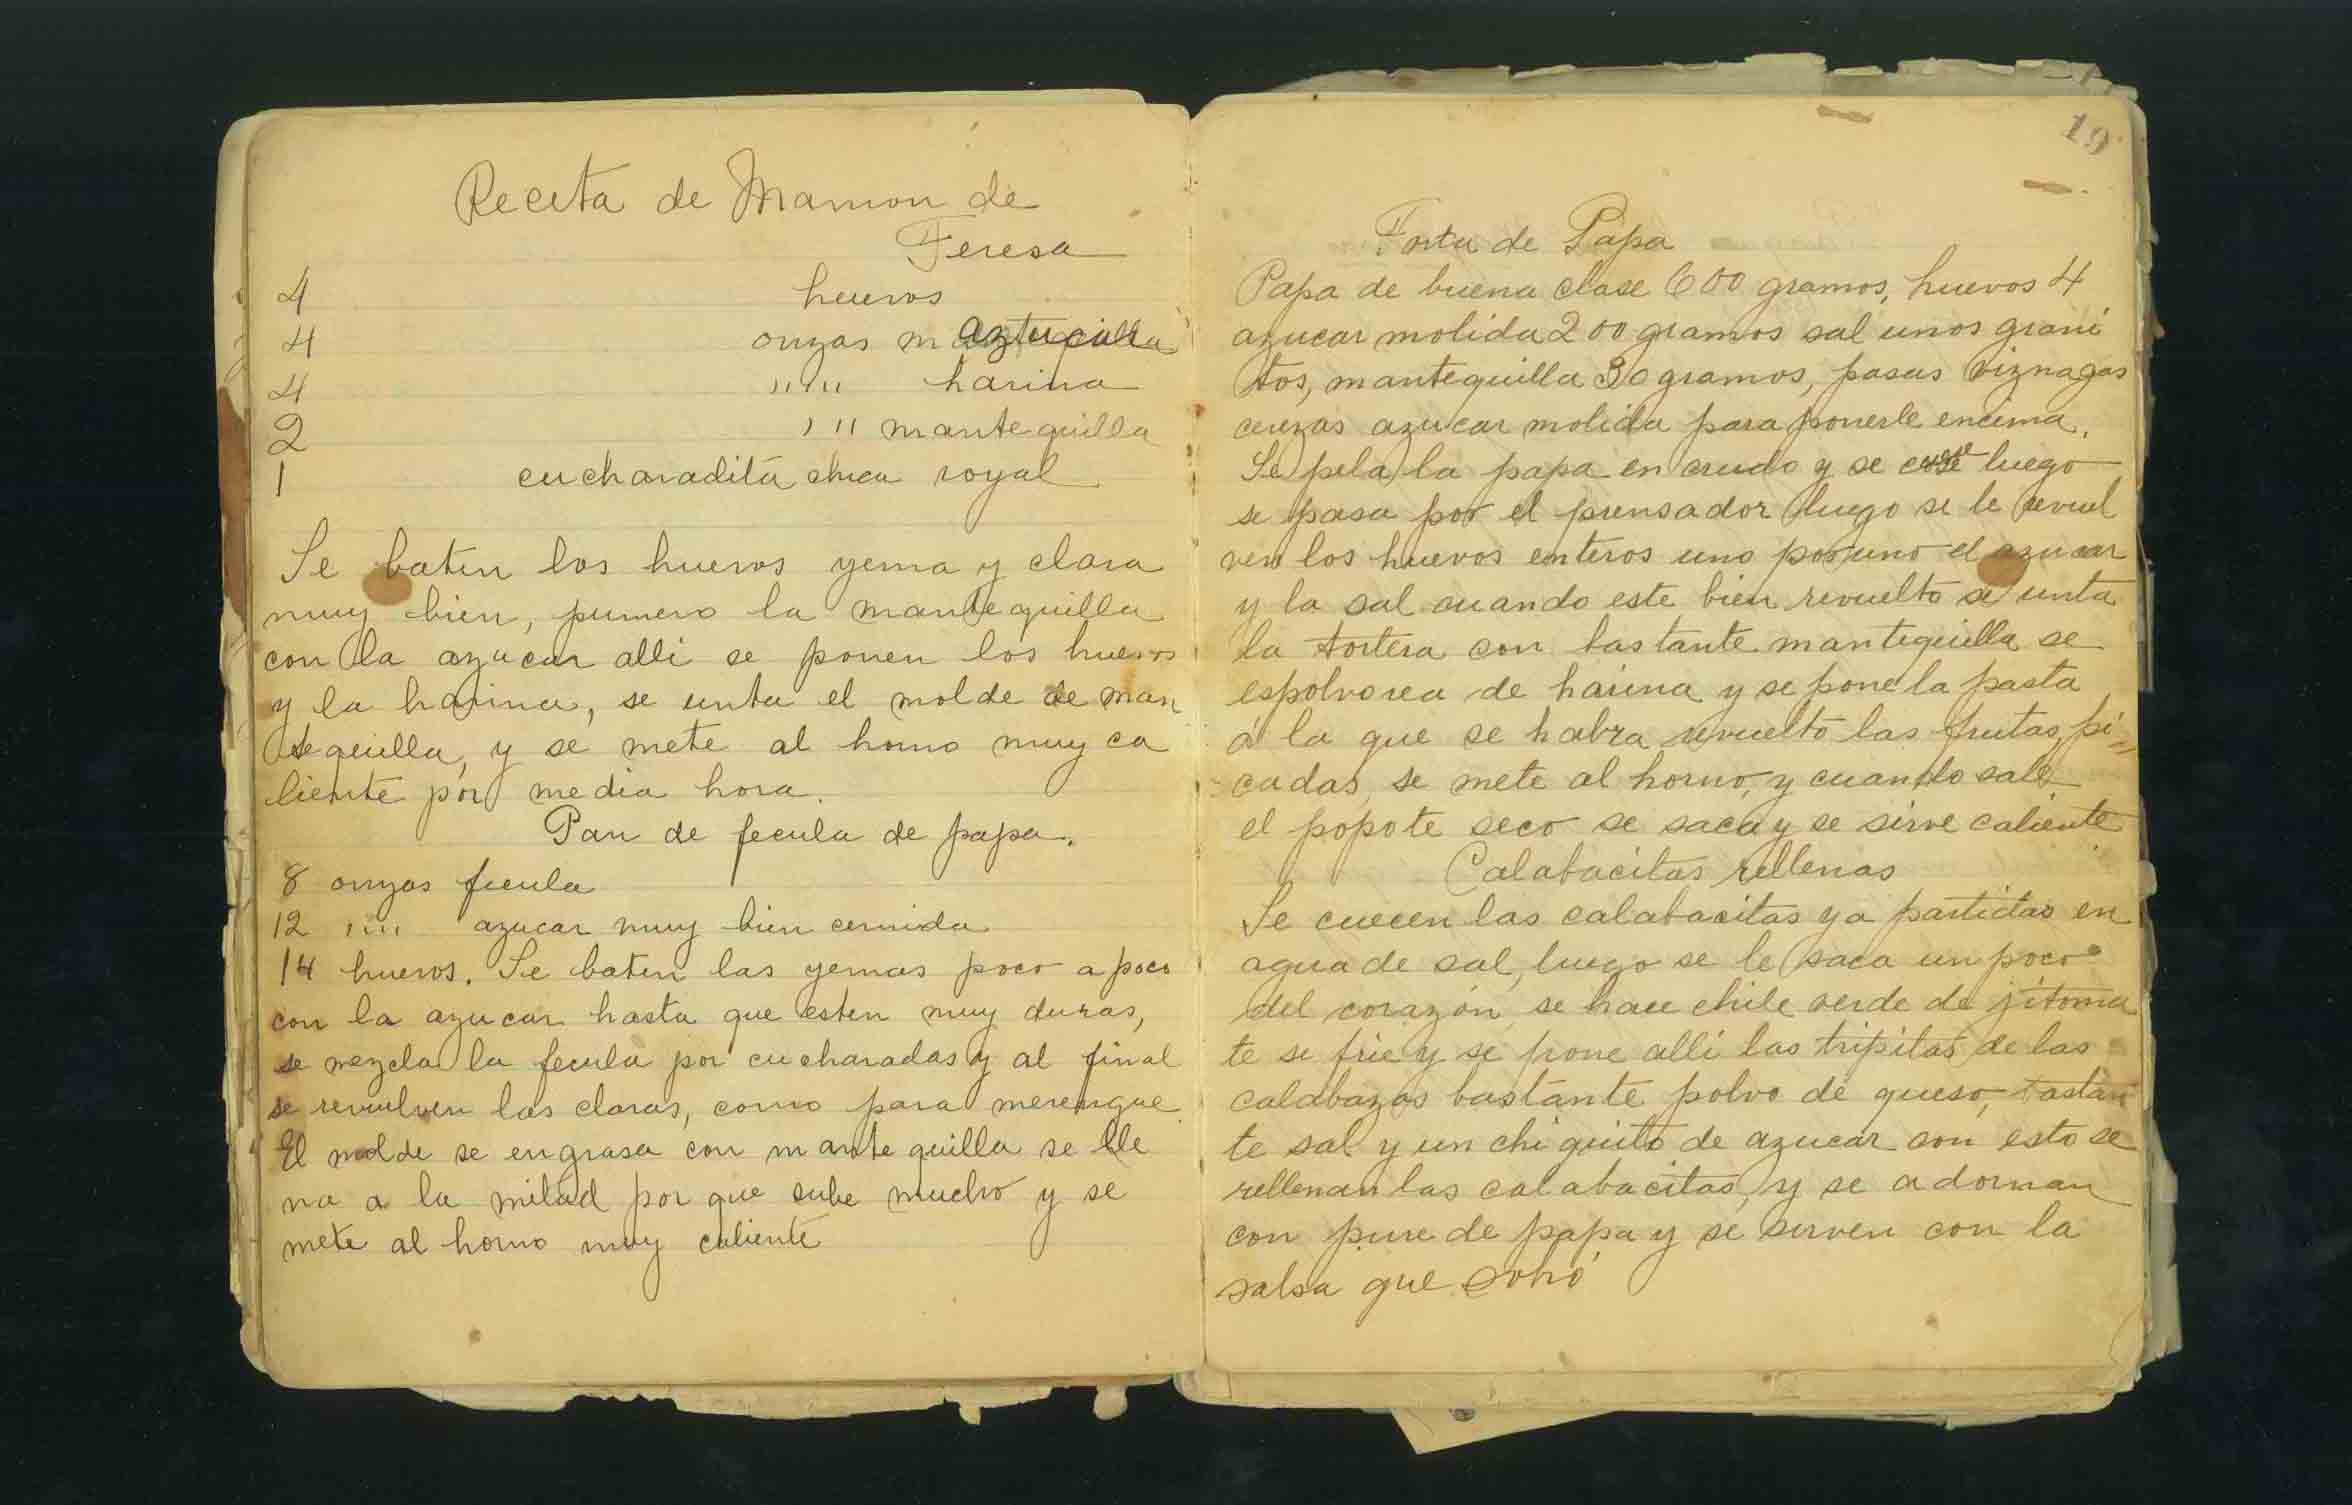 Receta de Mamon de
Teresa
4 huevos
4 onzas azucar
4 " " harina
2 " " mantequilla
1 cucharadita chica royal
Se baten los huevos yema y clara
muy bien, primero la mantequilla
con la azucar alli se ponen los huevos
y la harina, se unta el molde de man
tequilla, y se mete al horno muy ca
liente por media hora.
Pan de fecula de papa.
8 onzas fecula
12 " " azucar muy bien cernida
14 huevos. Se baten las yemas poco a poco
con la azucar hasta que esten muy duras,
se mezcla la fecula por cucharadas y al final
se revuelven las claras, como para merengue
El molde se engrasa con mantequilla se lle
na a la mitad por que sube mucho y se
mete al horno muy caliente
19
Torta de Papa
Papa de buena clase 600 gramos, huevos 4
azucar molida 200 gramos sal unos grani
tos, mantequilla 30 gramos, pasas viznagas
cerezas azucar molida para ponerle encima.
Se pela la papa en crudo y se cuese luego
se pasa por el prensador luego se le revuel
ven los huevos enteros uno por uno el azucar
y la sal cuando este bien revuelto se unta
la tortera con bastante mantequilla se
espolvorea de harina y se pone la pasta
á la que se habra revuelto las frutas pi=
cadas, se mete al horno, y cuando sale
el popote seco se saca y se sirve caliente
Calabacitas rellenas
Se cuecen las calabacitas ya partidas en
agua de sal, luego se le saca un poco
del corazón, se hace chile verde de jitoma
te se frie y se pone alli las tripitas de las
calabazas bastante polvo de queso, bastan
te sal y un chiquito de azucar con esto se
rellenan las calabacitas, y se adornan
con pure de papa y se sirven con la
salsa que sobró